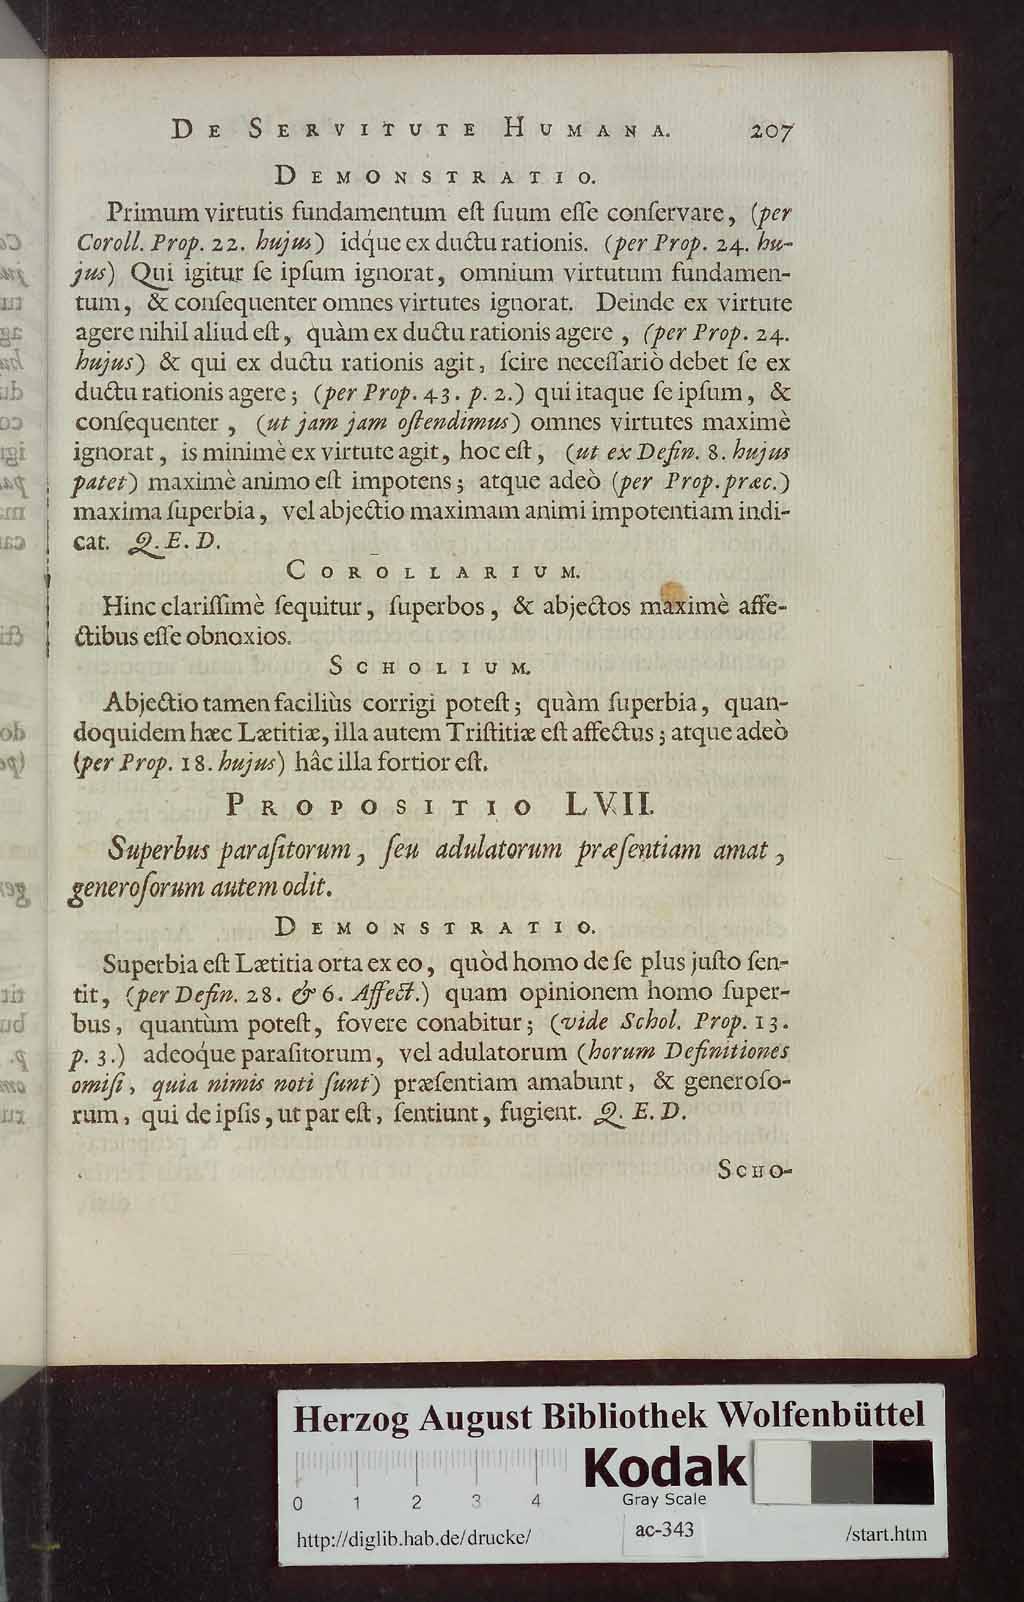 DE SERVITUTE HUMANA. 207
DEMONSTRATIO.
Primum virtutis fundamentum eſt ſuum eſſe conſervare, (per
Coroll. Prop. 22. hujus) idque ex ductu rationis. (per Prop. 24. hu-
jus) Qui igitur ſe ipſum ignorat, omnium virtutum fundamen-
tum, & conſequenter omnes virtutes ignorat. Deinde ex virtute
agere nihil aliud eſt, quàm ex ductu rationis agere, (per Prop. 24.
hujus) & qui ex ductu rationis agit, ſcire neceſſariò debet ſe ex
ductu rationis agere; (per Prop. 43. p. 2.) qui itaque ſe ipſum, &
conſequenter, (ut jam jam oſtendimus) omnes virtutes maximè
ignorat, is minimè ex virtute agit, hoc eſt, (ut ex Defin. 8. hujus
patet) maximè animo eſt impotens; atque adeò (per Prop. præc.)
maxima ſuperbia, vel abjectio maximam animi impotentiam indi-
cat. Q. E. D.
COROLLARIUM.
Hinc clariſſimè ſequitur, ſuperbos, & abjectos maximè affe-
ctibus eſſe obnoxios.
SCHOLIUM.
Abjectio tamen faciliùs corrigi poteſt; quàm ſuperbia, quan-
doquidem hæc Lætitiæ, illa autem Triſtitiæ eſt affectus; atque adeò
(per Prop. 18. hujus) hâc illa fortior eſt.
PROPOSITIO LVII.
Superbus paraſitorum, ſeu adulatorum præſentiam amat,
generoſorum autem odit.
DEMONSTRATIO.
Superbia eſt Lætitia orta ex eo, quòd homo de ſe plus juſto ſen-
tit, (per Defin. 28. & 6. Affect.) quam opinionem homo ſuper-
bus, quantùm poteſt, fovere conabitur; (vide Schol. Prop. 13.
p. 3.) adeoque paraſitorum, vel adulatorum (horum Definitiones
omiſi, quia nimis noti ſunt) præſentiam amabunt, & generoſo-
rum, qui de ipſis, ut par eſt, ſentiunt, fugient. Q. E. D.
SCHO-
Herzog August Bibliothek Wolfenbüttel
Kodak
0 1 2 3 4
Gray Scale
http://diglib.hab.de/drucke/ ac-343 /start.htm